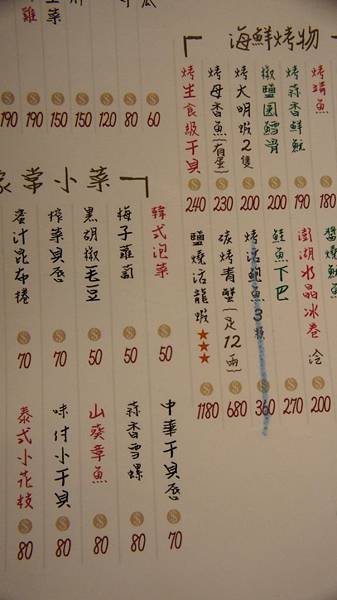 雞
190
190
150
150
120
80
60
海鮮烤物
烤
魚
180
烤蒜香鮮魷
190
椒鹽圓鱈骨
200
烤大明蝦2隻
200
烤母香魚(有蛋)
230
烤生食級干貝
240
澎湖水晶冰卷 冷
200
鮭魚下巴
270
烤活鮑魚3顆
360
碳烤青蟹(足12兩)
680
鹽燒活龍蝦★★★
1180
家常小菜
韓式泡菜
50
梅子蘿蔔
50
黑胡椒毛豆
50
榨菜貝唇
70
醬汁昆布捲
70
中華干貝唇
70
蒜香雪螺
80
山葵章魚
80
味付小干貝
80
泰式小花枝
80